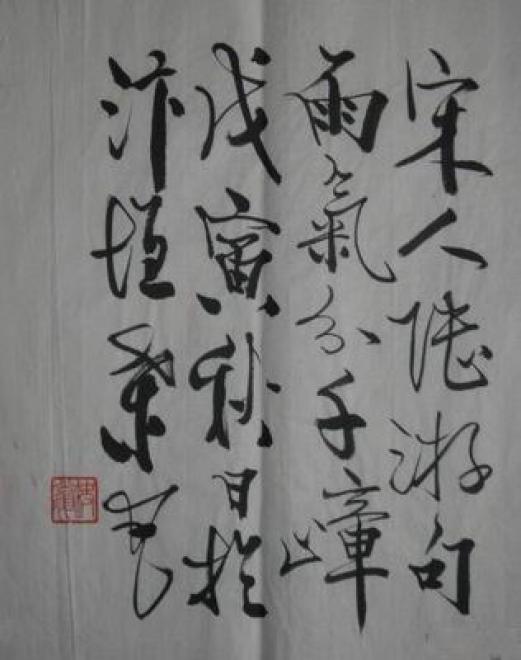 宋人陸游句
雨氣分千嶂
戊寅秋日於
汴垣